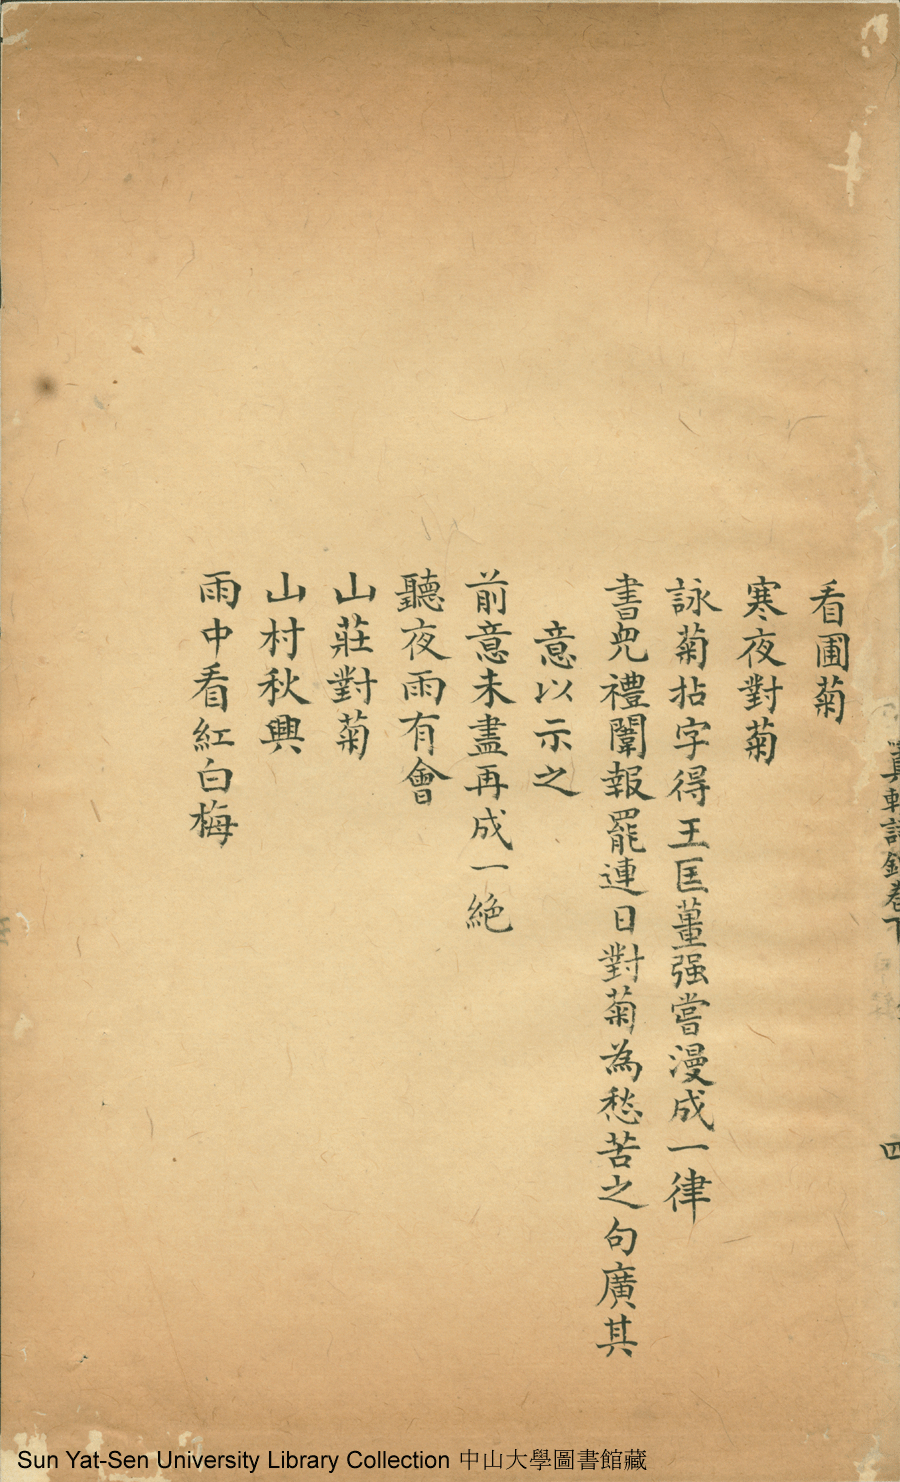 看圃菊
寒夜對菊
詠菊拈字得王匡薑强嘗漫成一律
書皃禮闈報罷連日對菊為愁苦之句廣其
意以示之
前意未盡再成一絶
聽夜雨有會
山莊對菊
山村秋興
雨中看紅白梅
軒詩鈔卷下
四
Sun Yat-Sen University Library Collection 中山大學圖書館藏